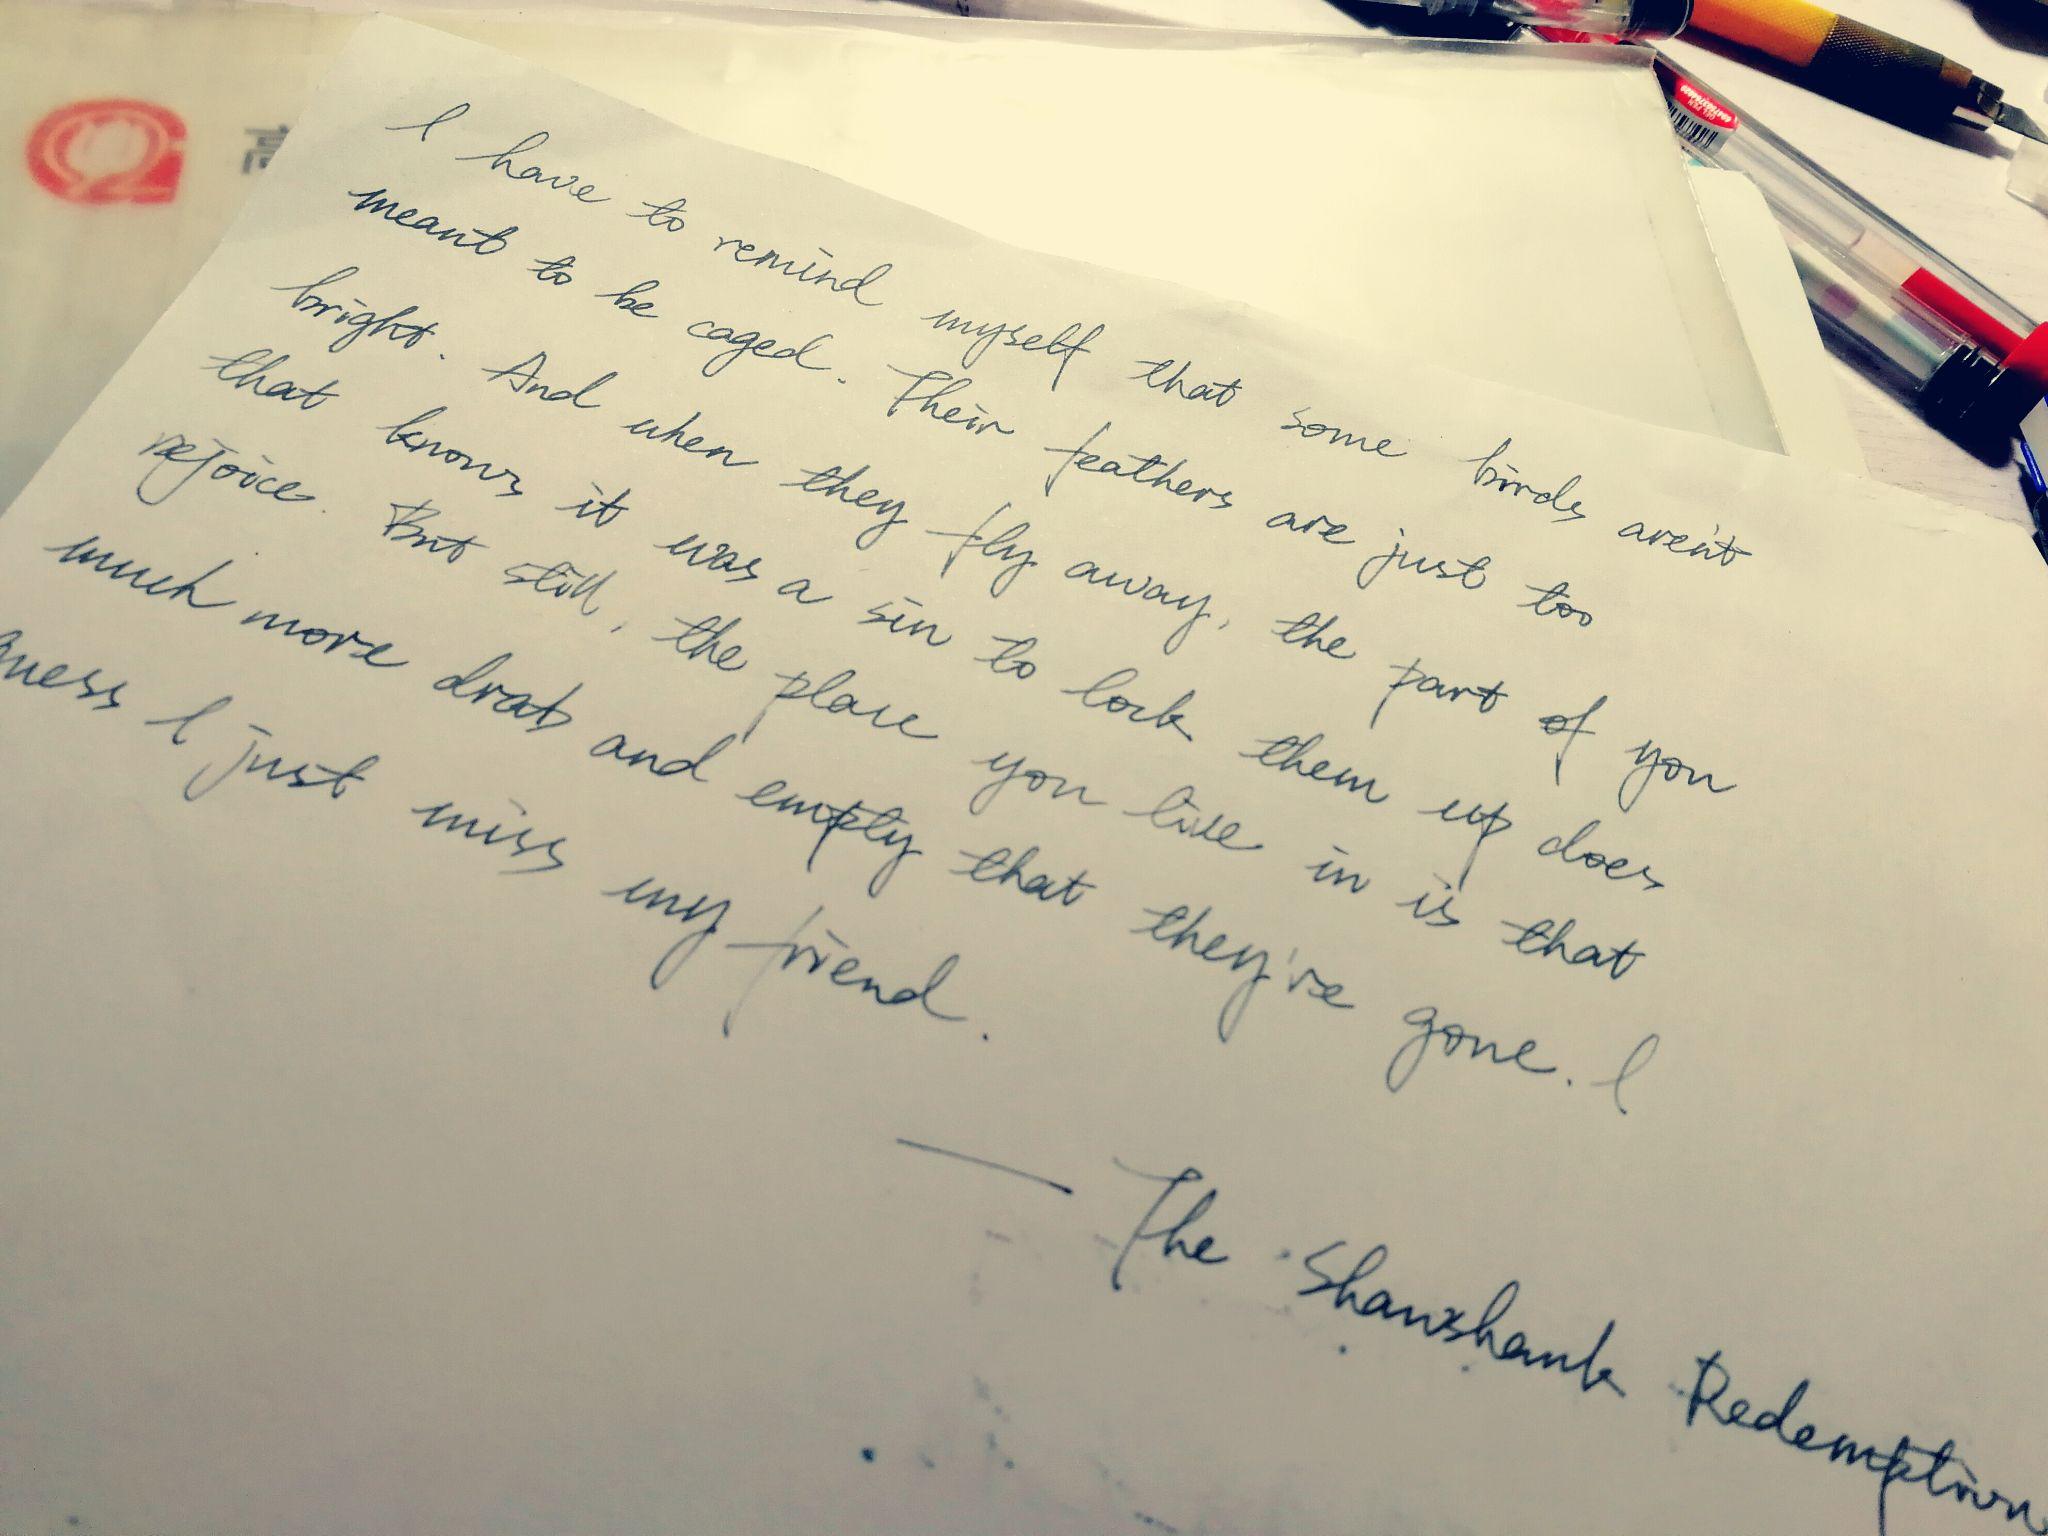 I have to remind myself that some birds aren't
meant to be caged. Their feathers are just too
bright. And when they fly away, the part of you
that knows it was a sin to lock them up does
rejoice. But still, the place you live in is that
much more drab and empty that they're gone. I
guess I just miss my friend.
— The Shawshank Redemption
GEL PEN